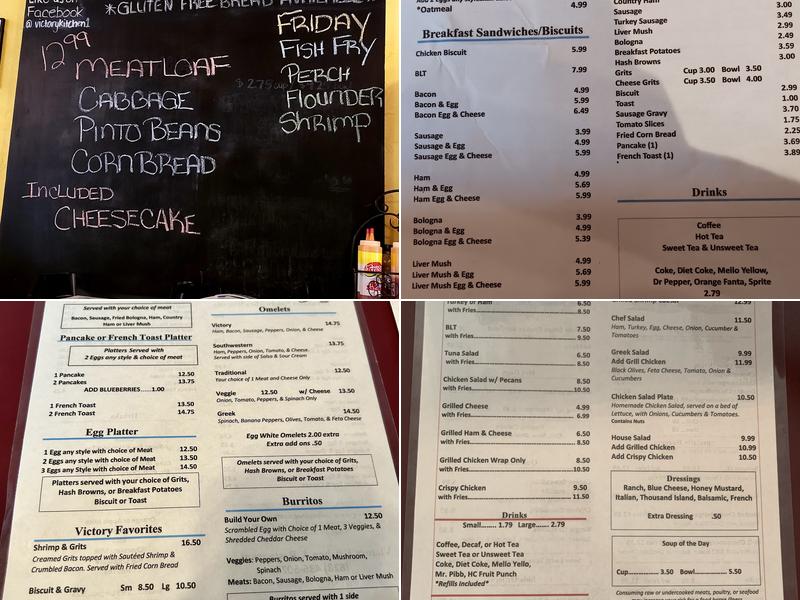 Facebook
@victorykitchen1
*GLUTEN FREE BREAD
12.99
MEATLOAF
CABBAGE
PINTO BEANS
CORNBREAD
INCLUDED
CHEESECAKE
FRIDAY
FISH FRY
PERCH
FLOUNDER
SHRIMP
*Oatmeal 4.99
Breakfast Sandwiches/Biscuits
Chicken Biscuit 5.99
BLT 7.99
Bacon 4.99
Bacon & Egg 5.99
Bacon Egg & Cheese 6.49
Sausage 3.99
Sausage & Egg 4.99
Sausage Egg & Cheese 5.99
Ham 4.99
Ham & Egg 5.69
Ham Egg & Cheese 5.99
Bologna 3.99
Bologna & Egg 4.99
Bologna Egg & Cheese 5.39
Liver Mush 4.99
Liver Mush & Egg 5.69
Liver Mush Egg & Cheese 5.99
Country Ham
Sausage 3.49
Turkey Sausage 3.49
Liver Mush 2.99
Bologna 2.49
Breakfast Potatoes 3.59
Hash Browns 3.00
Grits Cup 3.00 Bowl 3.50
Cheese Grits Cup 3.50 Bowl 4.00
Biscuit 2.99
Toast 1.00
Sausage Gravy 3.70
Tomato Slices 1.75
Fried Corn Bread 2.25
Pancake (1) 3.69
French Toast (1) 3.89
Drinks
Coffee
Hot Tea
Sweet Tea & Unsweet Tea
Coke, Diet Coke, Mello Yellow,
Dr Pepper, Orange Fanta, Sprite
2.79
Served with your choice of meat
Bacon, Sausage, Fried Bologna, Ham, Country
Ham or Liver Mush
Pancake or French Toast Platter
Platters Served with
2 Eggs any style & choice of meat
1 Pancake 12.50
2 Pancakes 13.75
ADD BLUEBERRIES.....1.00
1 French Toast 13.50
2 French Toast 14.75
Egg Platter
1 Egg any style with choice of Meat 12.50
2 Eggs any style with choice of Meat 13.50
3 Eggs any Style with choice of Meat 14.50
Platters served with your choice of Grits,
Hash Browns, or Breakfast Potatoes
Biscuit or Toast
Victory Favorites
Shrimp & Grits 16.50
Creamed Grits topped with Sautéed Shrimp &
Crumbled Bacon. Served with Fried Corn Bread
Biscuit & Gravy Sm 8.50 Lg 10.50
Omelets
Victory 14.75
Ham, Bacon, Sausage, Peppers, Onion, & Cheese
Southwestern 13.75
Ham, Peppers, Onion, Tomato, & Cheese.
Served with side of Salsa & Sour Cream
Traditional 12.50
Your choice of 1 Meat and Cheese Only
Veggie 12.50 w/ Cheese 13.50
Onion, Tomato, Peppers, & Spinach Only
Greek 14.50
Spinach, Banana Peppers, Olives, Tomato, & Feta Cheese
Egg White Omelets 2.00 extra
Extra add ons .50
Omelets served with your choice of Grits,
Hash Browns, or Breakfast Potatoes
Biscuit or Toast
Burritos
Build Your Own 12.50
Scrambled Egg with Choice of 1 Meat, 3 Veggies, &
Shredded Cheddar Cheese
Veggies: Peppers, Onion, Tomato, Mushroom,
Spinach
Meats: Bacon, Sausage, Bologna, Ham or Liver Mush
Burritos served with 1 side
Turkey or Ham 6.50
with Fries 8.50
BLT 7.50
with Fries 9.50
Tuna Salad 6.50
with Fries 8.50
Chicken Salad w/ Pecans 8.50
with Fries 10.50
Grilled Cheese 4.99
with Fries 6.99
Grilled Ham & Cheese 6.50
with Fries 8.50
Grilled Chicken Wrap Only 8.50
with Fries 10.50
Crispy Chicken 9.50
with Fries 11.50
Drinks
Small........ 1.79 Large...... 2.79
Coffee, Decaf, or Hot Tea
Sweet Tea or Unsweet Tea
Coke, Diet Coke, Mello Yello,
Mr. Pibb, HC Fruit Punch
*Refills Included*
12.99
Chef Salad 11.50
Ham, Turkey, Egg, Cheese, Onion, Cucumber &
Tomatoes
Greek Salad 9.99
Add Grill Chicken 11.99
Black Olives, Feta Cheese, Tomato, Onion &
Cucumbers
Chicken Salad Plate 10.50
Homemade Chicken Salad, served on a bed of
Lettuce, with Onions, Cucumbers & Tomatoes.
Contains Nuts
House Salad 9.99
Add Grilled Chicken 10.99
Add Crispy Chicken 10.99
Dressings
Ranch, Blue Cheese, Honey Mustard,
Italian, Thousand Island, Balsamic, French
Extra Dressing .50
Soup of the Day
Cup.............3.50 Bowl.............5.50
Consuming raw or undercooked meats, poultry, or seafood